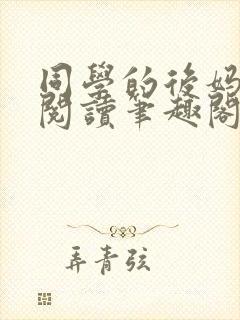 同學的後媽
閱讀筆趣閣
弄青弦